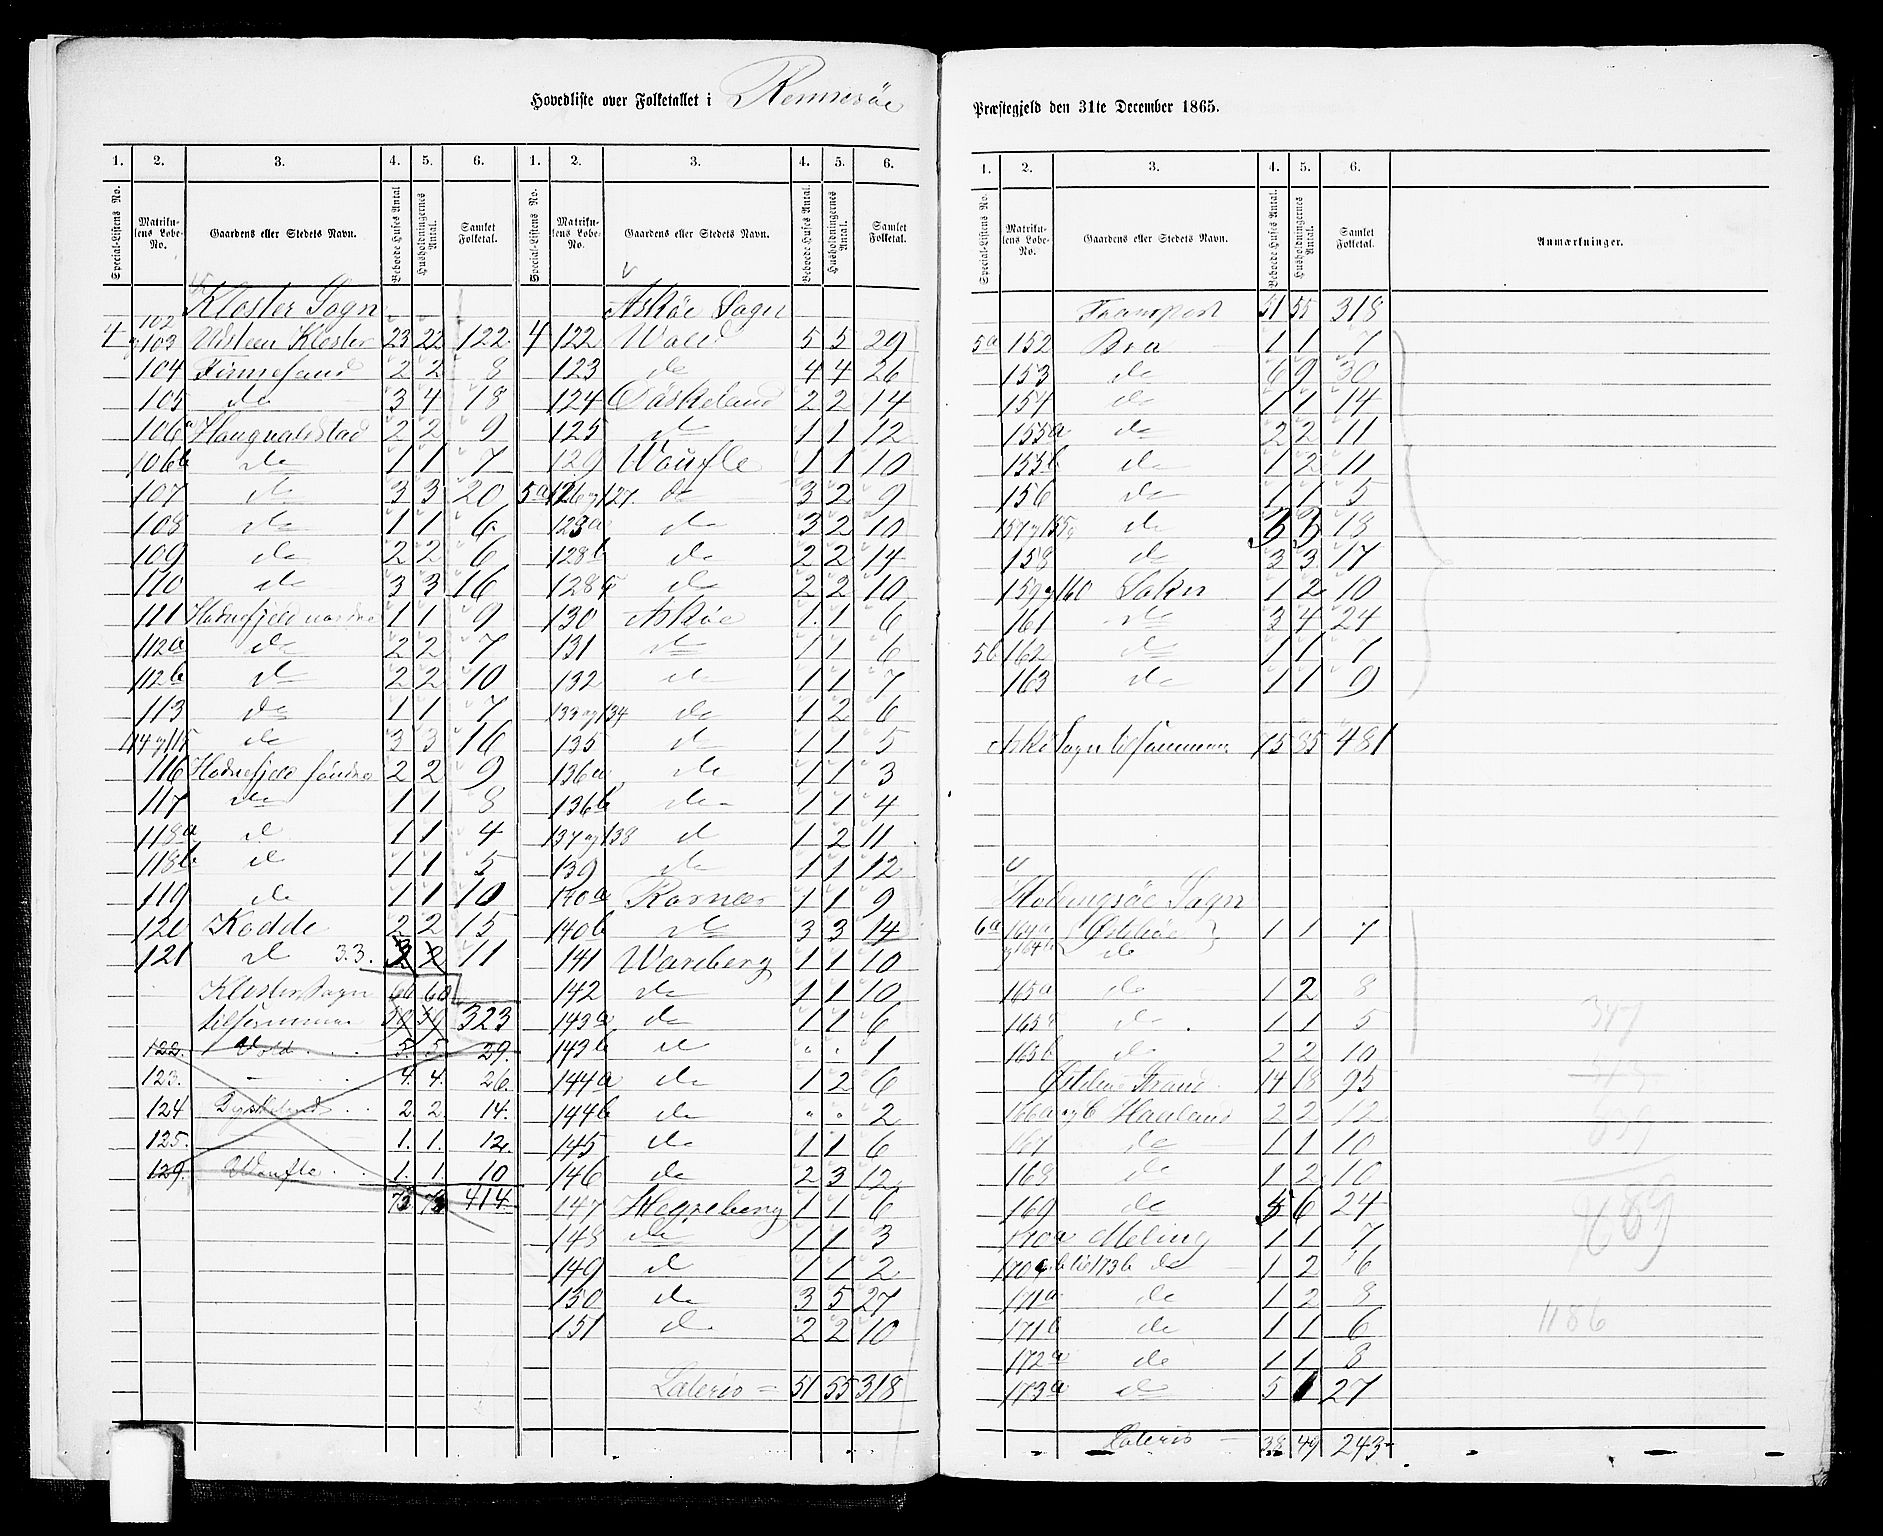 Hovedliste over Folketallet i Rennesøe
1. 2. 3. 4. 5. 6. 1. 2. 3. 4. 5. 6.
Special-Listens No. Matrikulens Løbe-No. Gaardens eller Stedets Navn. Beboede Huses Antal Husholdningernes Antal. Samlet Folketal. Special-Listens No. Matrikulens Løbe-No. Gaardens eller Stedets Navn. Beboede Huses Antal. Husholdningernes Antal. Samlet Folketal.
Kloster Sogn
102
4 og 103 Utsteen Kloster 23 22 122
104 Fennesand 2 2 8
105 do 3 4 18
106a Haugvaldstad 2 2 9
106b do 1 1 7
107 do 3 3 20
108 do 1 1 6
109 do 2 2 6
110 do 3 3 16
111 Hodnefjeld nordre 1 1 9
112a do 2 2 7
112b do 2 2 10
113 do 1 1 7
114 og 115 do 3 3 16
116 Hodnefjeld søndre 2 2 9
117 do 1 1 8
118a do 1 1 4
118b do 1 1 5
119 do 1 1 10
120 Kodde 2 2 15
121 do 3.3. 11
Kloster Sogn 60 60
tilsammen 59 59 323
122. Vold 5. 5. 29.
123. - 4. 4. 26.
124 Dyskeland 2. 2. 14.
125. 1. 1. 12.
129. Woufle 1. 1. 10
73 73 414
Askøe Sogn
4 122 Wold 5 5 29
123 do 4 4 26
124 Døskeland 2 2 14
125 do 1 1 12
129 Woufle 1 1 10
5a 126 og 127. do 3 2 9
128a do 3 2 10
128b do 2 2 14
128c do 2 2 10
130 Askøe 1 1 6
131 do 1 1 6
132 do 1 1 7
133 og 134 do 1 2 6
135 do 1 1 5
136a do 1 1 3
136b do 1 1 4
137 og 138 do 1 2 11
139 do 1 1 12
140a Ramnes 1 1 9
140b do 3 3 14
141 Wareberg 1 1 10
142 do 1 1 10
143a do 1 1 6
143b do " " 1
144a do 1 2 6
144b do " " 2
145 do 1 1 6
146 do 2 3 12
147 Hegreberg 1 1 6
148 do 1 1 3
149 do 1 1 2
150 do 3 5 27
151 do 2 2 10
Lateris = 51 55 318
Præstegjeld den 31te December 1865.
1. 2. 3. 4. 5. 6.
Special-Listens No. Matrikulens Løbe-No. Gaardens eller Stedets Navn. Beboede Huses Antal. Husholdningernes Antal. Samlet Folketal. Anmærkninger.
Transport 51 55 318
5a 152 Bru 1 1 7
153 do 6 9 30
154 do 1 1 14
155a do 2 2 11
155b do 1 2 11
156 do 1 1 5
157 og 155c do 3 3 18
158 do 3 3 17
159 og 160 Sokn 1 2 10
161 do 3 4 24
5b 162 do 1 1 7
163 do 1 1 9
Askø Sogn tilsammen 75 85 481
Hodingsøe Sogn
6a 164a Østhuse 1 1 7
og 164b do
165a do 1 2 8
165 do 1 1 5
165b do 2 2 10
Østhus Strand 14 18 95
166a og b Hauland 2 2 12
167 do 1 1 10
168 do 1 2 10
169 do 5 6 24
170a Meling 1 1 7
170 b til 173b do 1 2 6
171a do 1 2 8
171b do 1 1 6
172a do 1 1 8
173a do 5 27
Lateris 38 49 243
347
689
1186